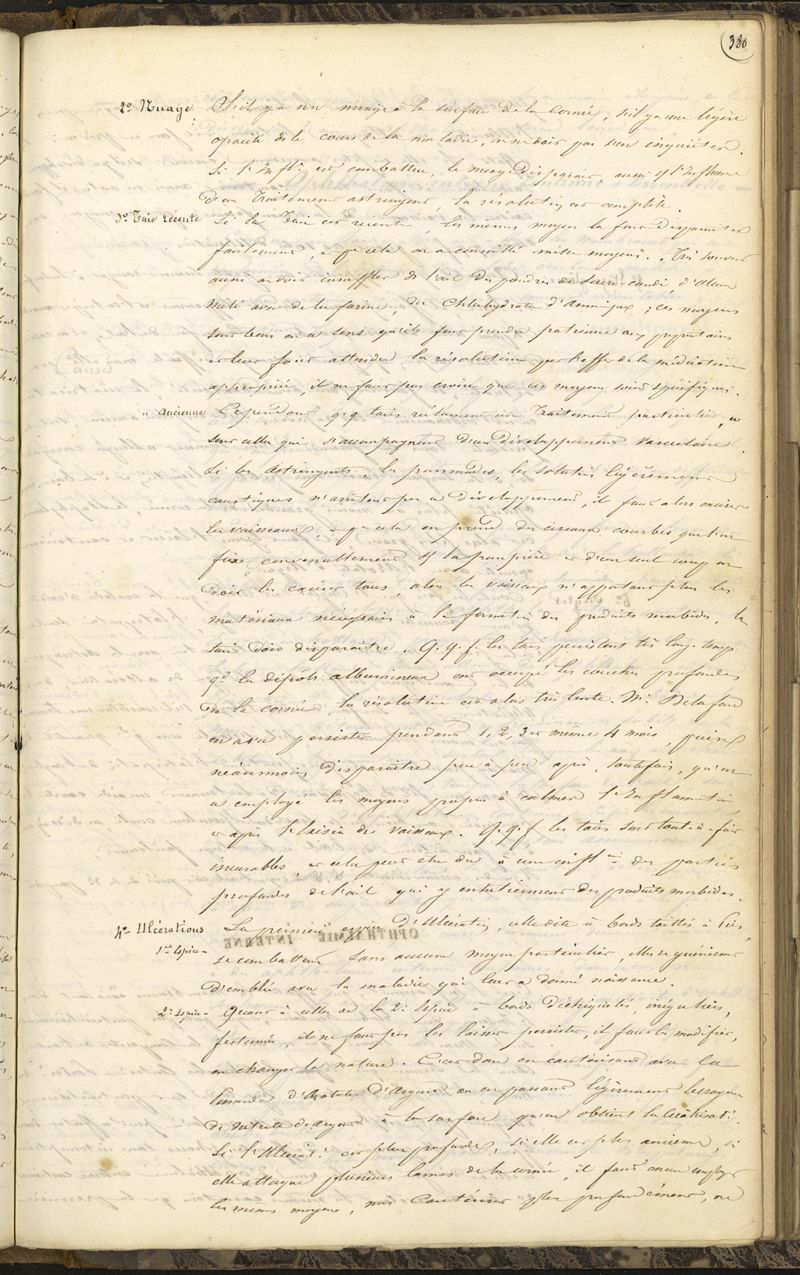 380
2º Nuage S'il y a un nuage à la surface de la Cornée, s'il y a une légère
opacité ds le cours de la maladie, on ne doit pas s'en inquiéter.
Si l'Inflt. est combattue, le nuage disparaît, aussi s/ l'influence
d'un Traitement astringent, la résolution est complète.
3º Taie récente Si la Taie est récente, les mêmes moyens la font disparaître
facilement, et pr cela on a conseillé mille moyens. Très souvent
aussi on doit insuffler ds l'œil des poudres de Sucre candi d'alun
mêlé avec de la farine, du Chlorhydrate d'Ammoniaque; ces moyens
sont bons en ce sens qu'ils font prendre patience aux propriétaires
et leur font attendre la résolution par l'effet de la médication
appropriée, il ne faut pas croire que ces moyens soient spécifiques.
" ancienne Cependant q.q. taies réclament un Traitement particulier, ce
sont celles qui s'accompagnent d'un développement vasculaire.
Si les astringents, les pommades, les solutés légèrement
caustiques n'arrêtent pas ce développement, il faut alors exciser
les vaisseaux, et pr cela on prend des ciseaux courbes que l'on
fixe s/ la paupière et d'un seul coup on
doit les exciser tous, alors les vaisseaux n'apportant plus les
matériaux nécessaires à la formatn des produits morbides, la
taie doit disparaître. Q.q.f. les taies persistent très long-temps
qd les dépôts albumineux ont occupé les couches profondes
de la cornée, la résolution est alors très lente. Mr. Delafond
en a vu persister pendant 1, 2, 3 et même 4 mois, puis
néanmoins disparaître peu à peu après, toutefois, qu'on
a employé les moyens propres à calmer l'Inflammatn
et après des vaisseaux. Q.q.f. les taies sont tout-à-fait
incurables, et cela peut être dû à une inflt. des parties
profondes de l'œil qui y entretiennent des produits morbides.
4º Ulcérations La première espèce d'Ulcération, celle dite à bords taillés à pic,
1ère Espèce se combattent sans aucun moyen particulier, elles se guérissent
d'emblée avec la maladie qui leur a donné naissance.
2e Espèce Quant à celles de la 2e Espèce à bords déchiquetés, irréguliers,
festonnés, il ne faut pas les laisser persister, il faut les modifier,
en changer la nature. C'est donc en cautérisant avec la
d'Azotate d'Argent ou en passant légèrement le crayon
de nitrate d'argent à la surface qu'on obtient la cicatrisatn.
Si l'Ulcératn. est plus profonde, si elle est plus ancienne, si
elle attaque plusieurs lames de la cornée, il faut encore employer
les mêmes moyens, mais cautériser plus profondément, on
OPHTHALMIE INTERNE